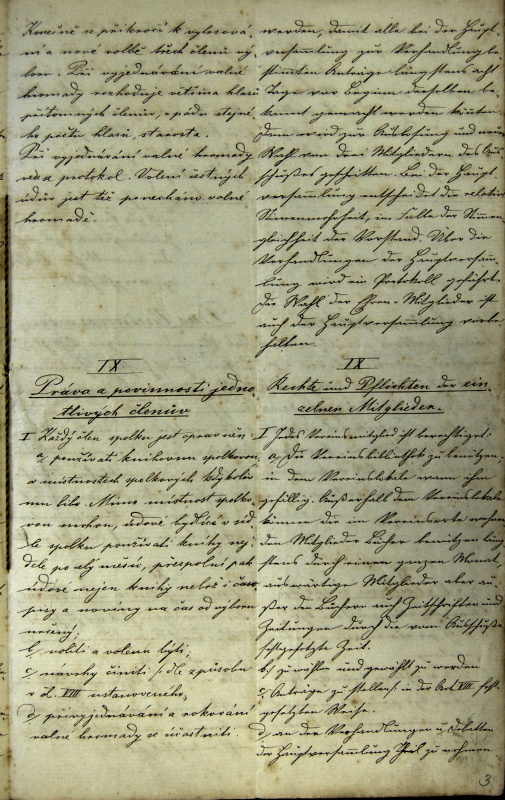 Konečně se přikročí k vylosová-
ní a nové volbě třech členů vý-
boru. Při vyjednávání valné
hromady rozhoduje většina hlasů
přítomných členův, v pádu stejné-
ho počtu hlasů, starosta.
Při vyjednávání valné hromady
vede se protokol. Volení čestných
údův jest též ponecháno valné
hromadě.
IX
Práva a povinnosti jedno-
tlivých členův
I Každý člen spolku jest oprávněn:
a, používati knihovnu spolkovou
v místnostech spolkových kdykoliv
mu libo. Mimo místnost spolko-
vou mohou, údové bydlící v síd-
le spolku používati knihy nej-
déle po celý měsíc, přespolní pak
údové nejen knihy nebož i časo-
pisy a noviny na čas od výboru
určený;
b, voliti a volenu býti;
c, návrhy činiti /:dle způsobu
v čl. VIII ustanoveného,
d, při vyjednávání a rokování
valné hromady se účastniti.
werden, damit alle bei der Haupt-
versammlung zur Verhandlung be-
stimmten Anträge längstens acht
Tage vor Beginn derselben be-
kannt gemacht werden können.
Dann wird zur Auslosung und neuen
Wahl von drei Mitgliedern des Aus-
schußes geschritten. Bei der Haupt-
versammlung entscheidet die relative
Stimmenmehrheit, im Falle der Stimmen-
gleichheit der Vorstand. Über die
Verhandlungen der Hauptversam-
lung wird ein Protokoll geführt.
Die Wahl der Ehren-Mitglieder ist
auch der Hauptversammlung vorbe-
halten.
IX
Rechte und Pflichten der ein-
zelnen Mitglieder.
I Jedes Vereinsmitglied ist berechtiget:
a, Die Vereinsbibliothek zu benützen,
in dem Vereinslokale wann ihm
gefällig. Außerhalb dem Vereinslokale
können die im Vereinsorte wohnen-
den Mitglieder Bücher benützen läng-
stens durch einen ganzen Monat,
auswärtige Mitglieder aber au-
ßer den Büchern auch Zeitschriften und
Zeitungen durch die vom Ausschuße
festgesetzte Zeit.
b, zu wählen und gewählt zu werden
c, Anträge zu stellen /: in der Art. VIII fest-
gesetzten Weise.
d, an den Verhandlungen u. Debatten
der Hauptversammlung Theil zu nehmen
3